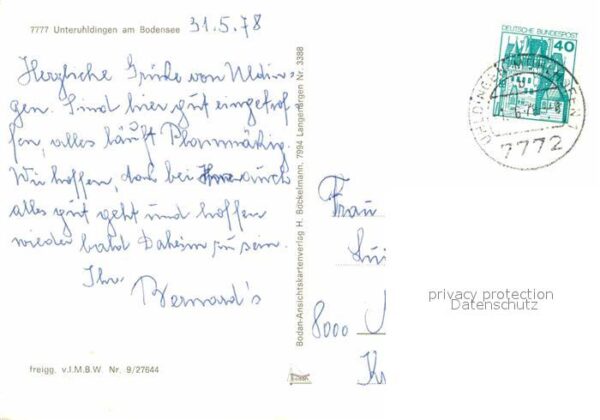 7777 Unteruhldingen am Bodensee 31.5.78
Herzliche Grüße von Uldin-
gen. Sind hier gut eingetrof
fen, alles läuft Planmäßig.
Wir hoffen, daß bei Ihnen auch
alles gut geht und hoffen
wieder bald Daheim zu sein.
Ihr
Bernard's
freigg. v.I.M.B.W Nr. 9/27644
Bodan-Ansichtskartenverlag H. Böckelmann, 7994 Langenargen Nr. 3388
DEUTSCHE BUNDESPOST
40
7772
Frau
8000
privacy protection
Datenschutz